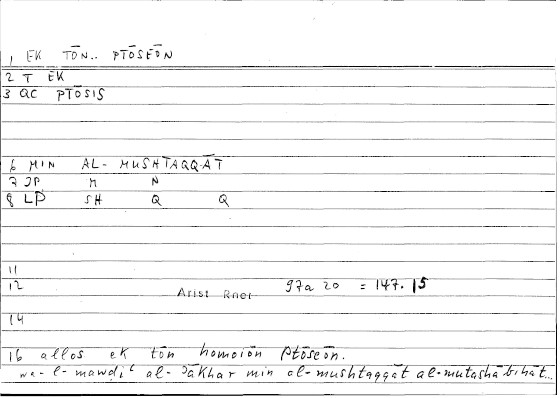 1 EK TŌN.. PTŌSEŌN
2 T EK
3 QC PTŌSIS
6 MIN AL- MUSHTAQQ-ĀT
7 JP M N
8 LP SH Q Q
11
12 Arist Rhet 97a 20 = 147.15
14
16 allos ek tōn homoiōn Ptōseōn.
wa-l-mawḍiʿ al-ʾākhar min al-mushtaqqāt al-mutashābihāt...